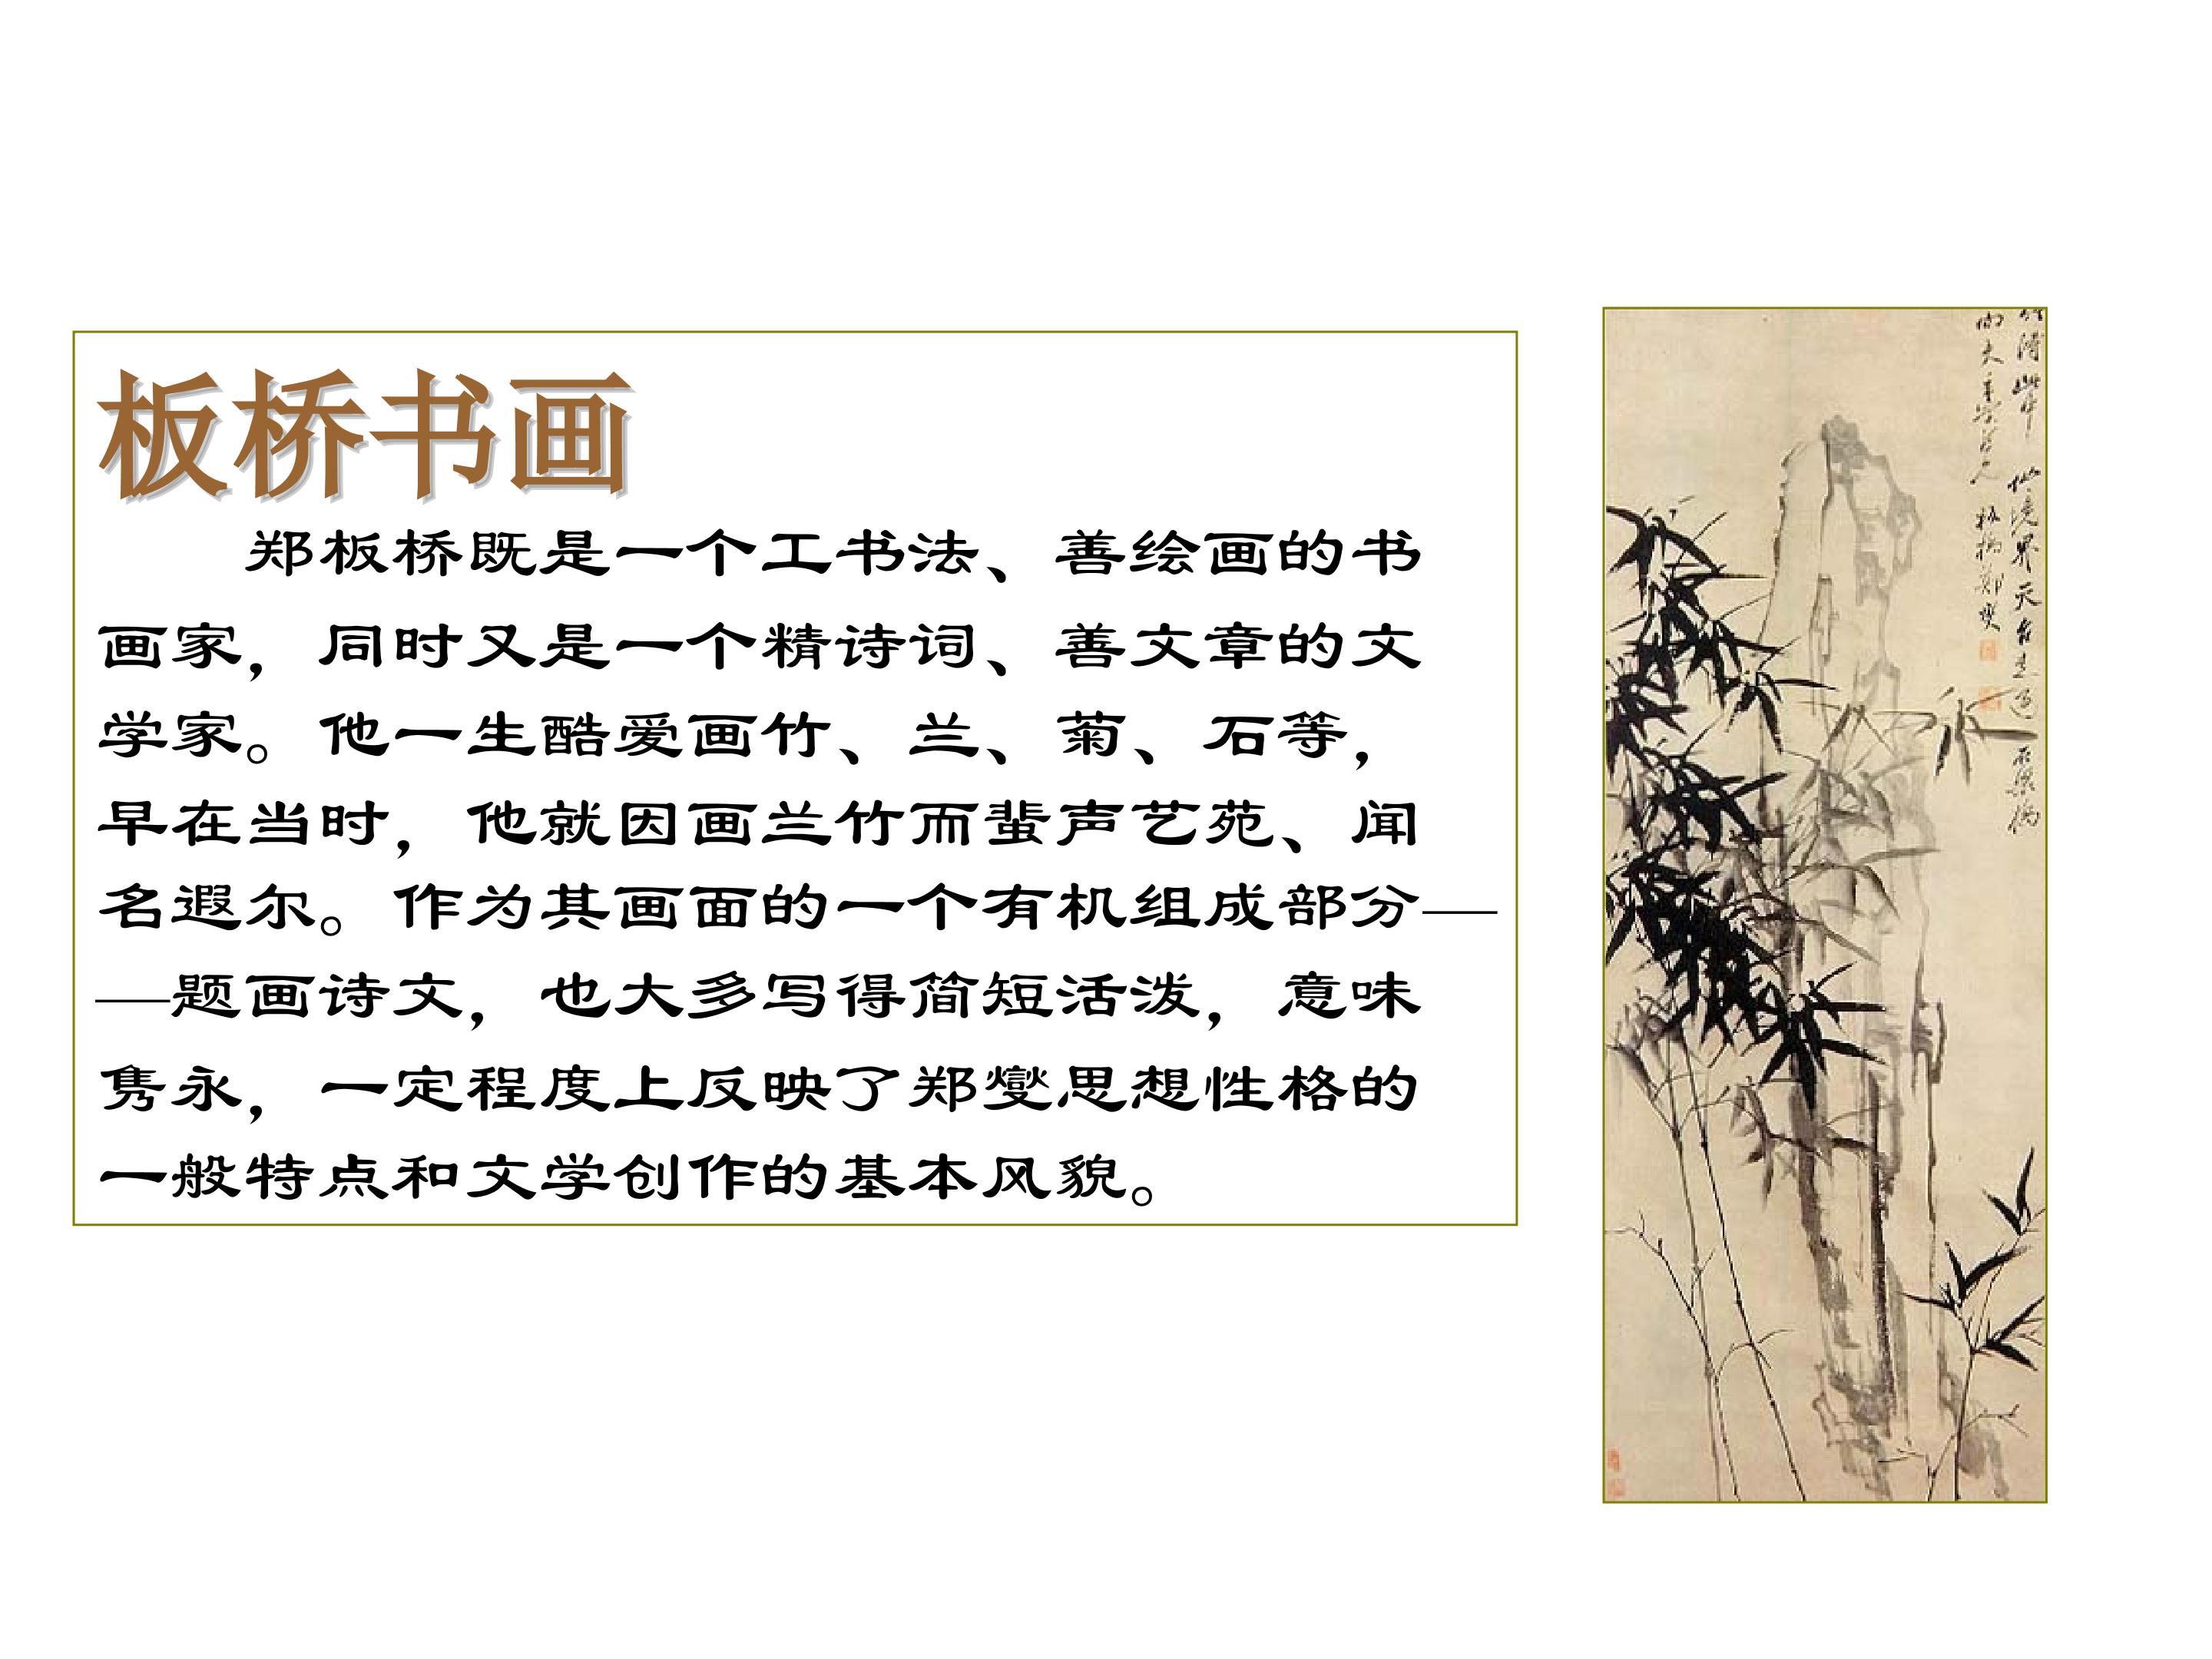 板桥书画
郑板桥既是一个工书法、善绘画的书
画家，同时又是一个精诗词、善文章的文
学家。他一生酷爱画竹、兰、菊、石等，
早在当时，他就因画兰竹而蜚声艺苑、闻
名遐尔。作为其画面的一个有机组成部分—
—题画诗文，也大多写得简短活泼，意味
隽永，一定程度上反映了郑燮思想性格的
一般特点和文学创作的基本风貌。
境界天台
板桥郑燮